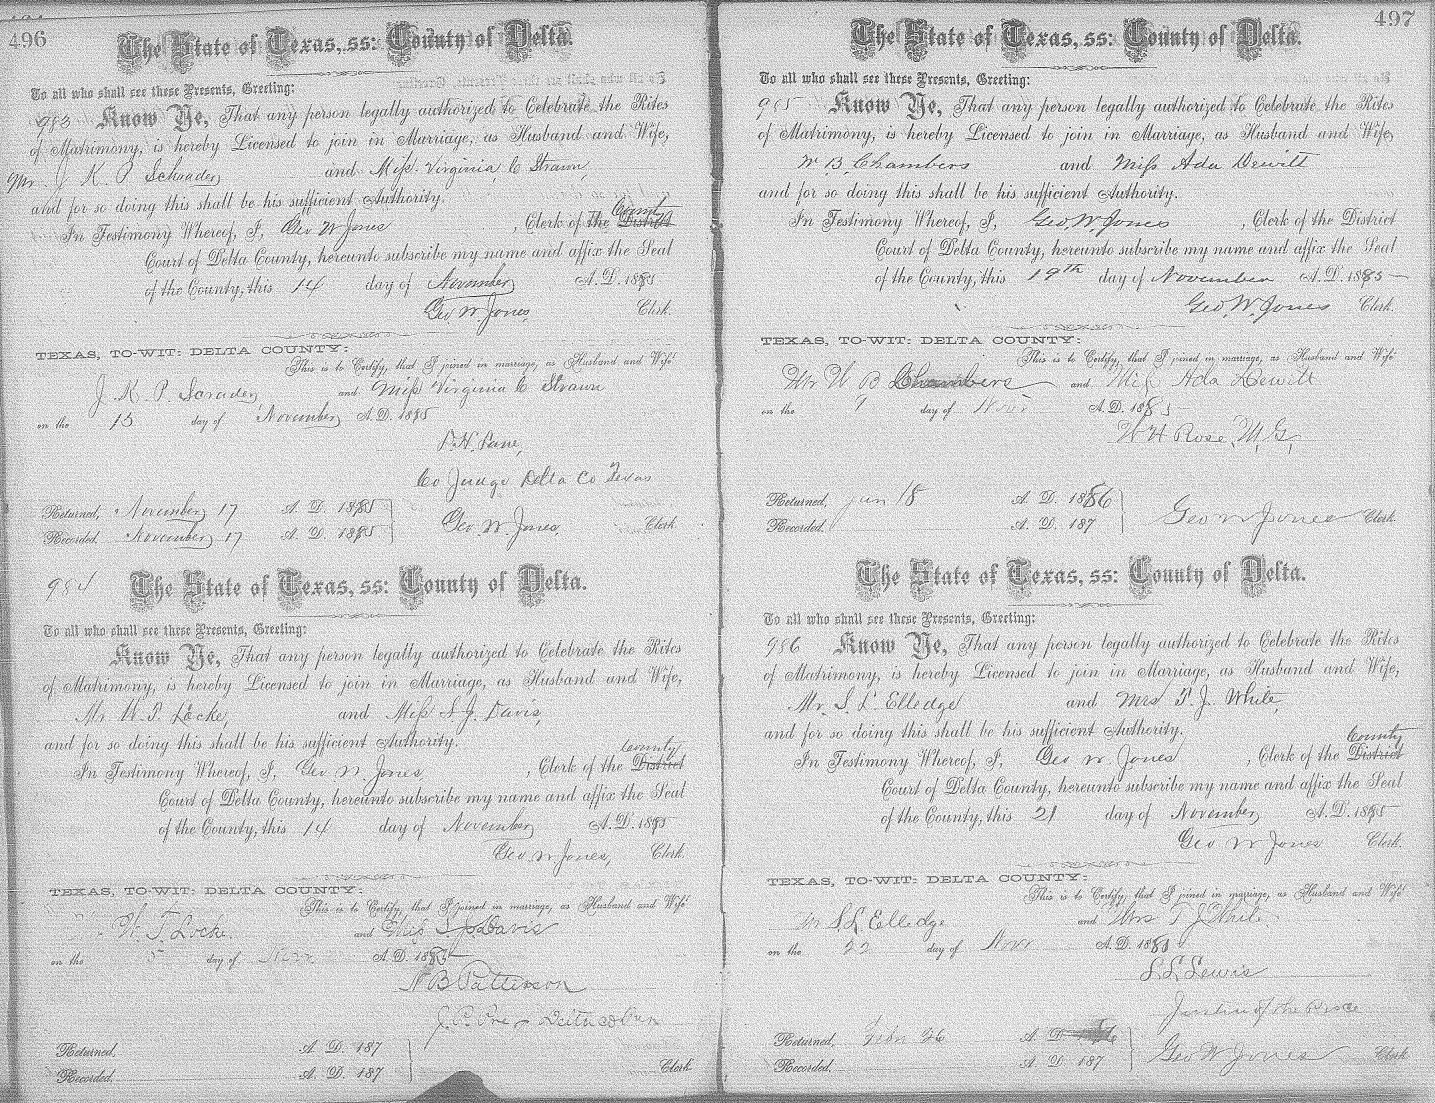 496
The State of Texas, ss: County of Delta.
To all who shall see these Presents, Greeting:
983 Know Ye, That any person legally authorized to Celebrate the Rites
of Matrimony, is hereby Licensed to join in Marriage, as Husband and Wife,
Mr. J K P Schrader and Miss Virginia C Strawn
and for so doing this shall be his sufficient Authority.
In Testimony Whereof, I, Geo W Jones, Clerk of the County District
Court of Delta County, hereunto subscribe my name and affix the Seal
of the County, this 14 day of November A. D. 1885
Geo W Jones, Clerk.
TEXAS, TO-WIT: DELTA COUNTY:
This is to Certify, that I joined in marriage, as Husband and Wife
J. K. P. Scrader and Miss Virginia C Strawn
on the 15 day of November A. D. 1885
Lane,
Co Judge Delta Co Texas
Returned, November 17 A. D. 1885
Recorded. November 17 A. D. 1885 Geo. W. Jones, Clerk
984 The State of Texas, ss: County of Delta.
To all who shall see these Presents, Greeting:
Know Ye, That any person legally authorized to Celebrate the Rites
of Matrimony, is hereby Licensed to join in Marriage, as Husband and Wife,
Mr W. T. Locke, and Miss S. J. Davis,
and for so doing this shall be his sufficient Authority.
In Testimony Whereof, I, Geo W Jones, Clerk of the County District
Court of Delta County, hereunto subscribe my name and affix the Seal
of the County, this 14 day of November A. D. 1885
Geo W Jones, Clerk.
TEXAS, TO-WIT: DELTA COUNTY:
This is to Certify, that I joined in marriage, as Husband and Wife
W. T. Locke. and Miss S J Davis
on the 15 day of Nov A. D. 1885
N B Patterson
J. P. Pre Delta co
Returned, A. D. 187
Recorded. A. D. 187 Clerk
497
The State of Texas, ss: County of Delta.
To all who shall see these Presents, Greeting:
985 Know Ye, That any person legally authorized to Celebrate the Rites
of Matrimony, is hereby Licensed to join in Marriage, as Husband and Wife,
W. B. Chambers and Miss Ada Dewitt
and for so doing this shall be his sufficient Authority.
In Testimony Whereof, I, Geo. W. Jones, Clerk of the District
Court of Delta County, hereunto subscribe my name and affix the Seal
of the County, this 19th day of November A. D. 1885
Geo. W. Jones Clerk.
TEXAS, TO-WIT: DELTA COUNTY:
This is to Certify, that I joined in marriage, as Husband and Wife
Mr W B Chambers and Miss Ada Dewitt
on the day of Nov A. D. 1885
W H Rose, M, G,
Returned, Jan 18 A. D. 1886
Recorded. A. D. 187 Geo W Jones Clerk
The State of Texas, ss: County of Delta.
To all who shall see these Presents, Greeting:
986 Know Ye, That any person legally authorized to Celebrate the Rites
of Matrimony, is hereby Licensed to join in Marriage, as Husband and Wife,
Mr. S. L. Elledge and Mrs T. J. White,
and for so doing this shall be his sufficient Authority.
In Testimony Whereof, I, Geo W Jones, Clerk of the County District
Court of Delta County, hereunto subscribe my name and affix the Seal
of the County, this 21 day of November A. D. 1885
Geo W Jones Clerk.
TEXAS, TO-WIT: DELTA COUNTY:
This is to Certify, that I joined in marriage, as Husband and Wife
Mr S. L Elledge and Mrs T J White
on the 22 day of Nov A. D. 188
S. L. Lewis
Justice of the Peace
Returned, Febr 26 A. D. 86
Recorded. A. D. 187 Geo W Jones Clerk